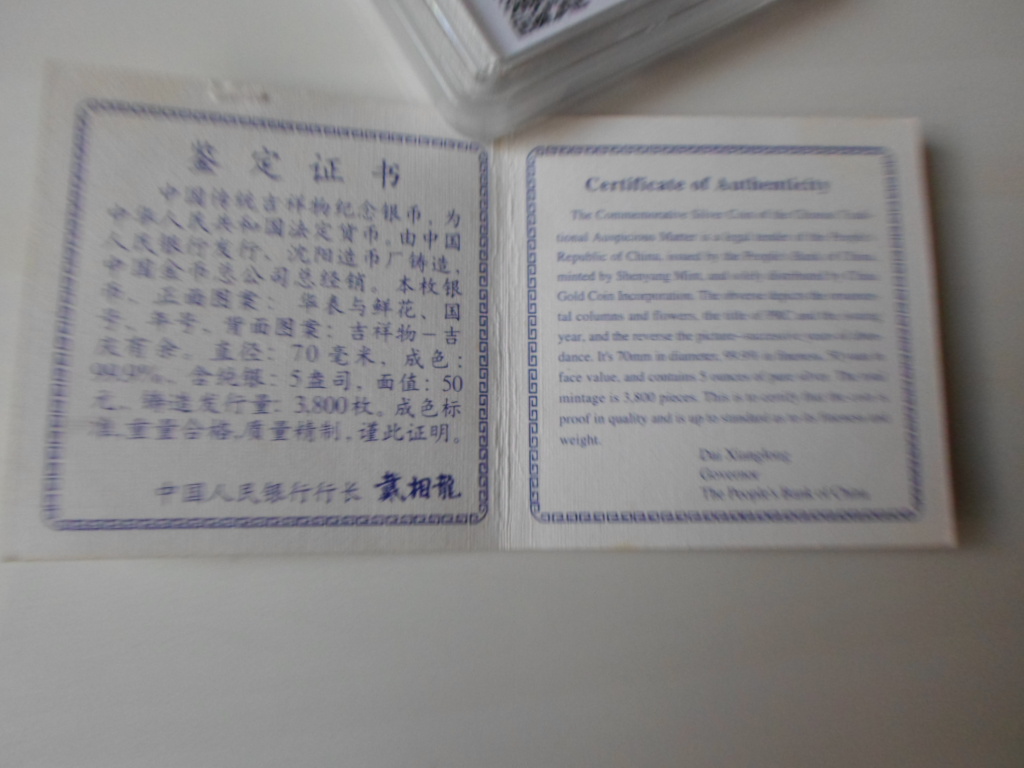 鉴定证书
中国传统吉祥物纪念银币,为
中华人民共和国法定货币,由中国
人民银行发行、沈阳造币厂铸造,
中国金币总公司总经销。本枚银
币,正面图案:华表与鲜花、国
号、年号,背面图案:吉祥物—吉
庆有余。直径:70毫米,成色:
99.9%,含纯银:5盎司,面值:50
元,铸造发行量:3,800枚。成色标
准,重量合格,质量精制,谨此证明。
中国人民银行行长 戴相龙
Certificate of Authenticity
The Commemorative Silver Coin of the Chinese Tradi-
tional Auspicious Matter is a legal tender of the People's
Republic of China, issued by the People's Bank of China,
minted by Shenyang Mint, and solely distributed by China
Gold Coin Incorporation. The obverse depicts the ornamen-
tal columns and flowers, the title of PRC and the issuing
year, and the reverse the picture-successive years of abun-
dance. It's 70mm in diameter, 99.9% in fineness, 50 yuan in
face value, and contains 5 ounces of pure silver. The total
mintage is 3,800 pieces. This is to certify that the coin is
proof in quality and is up to standard as to its fineness and
weight.
Dai Xianglong
Governor
The People's Bank of China